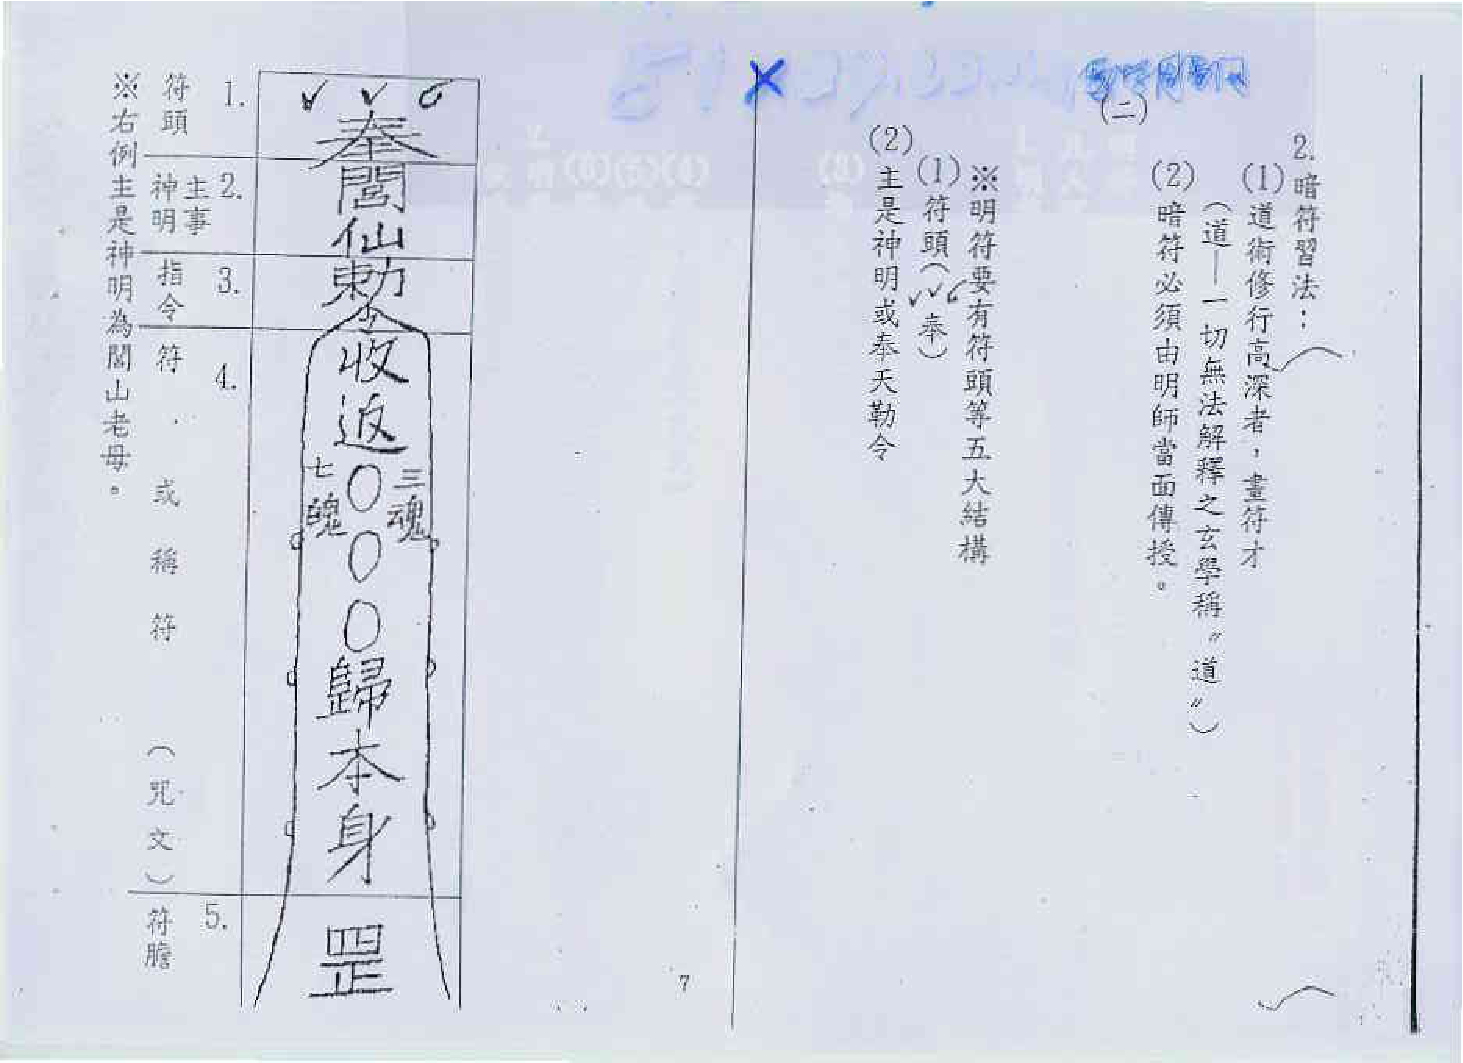 (二)
2.暗符習法：
(1)道術修行高深者，畫符才
（道—一切無法解釋之玄學稱〞道〞）
(2)暗符必須由明師當面傳授。
※明符要有符頭等五大結構
(1)符頭（奉）
(2)主是神明或奉天勅令
奉
閭仙
勅令
收返〇〇〇歸本身
三魂
七魄
罡
1.
符頭
2.
主事
神明
3.
指令
4.
符．或稱符（咒文）
5.
符膽
※右例主是神明為閭山老母。
7